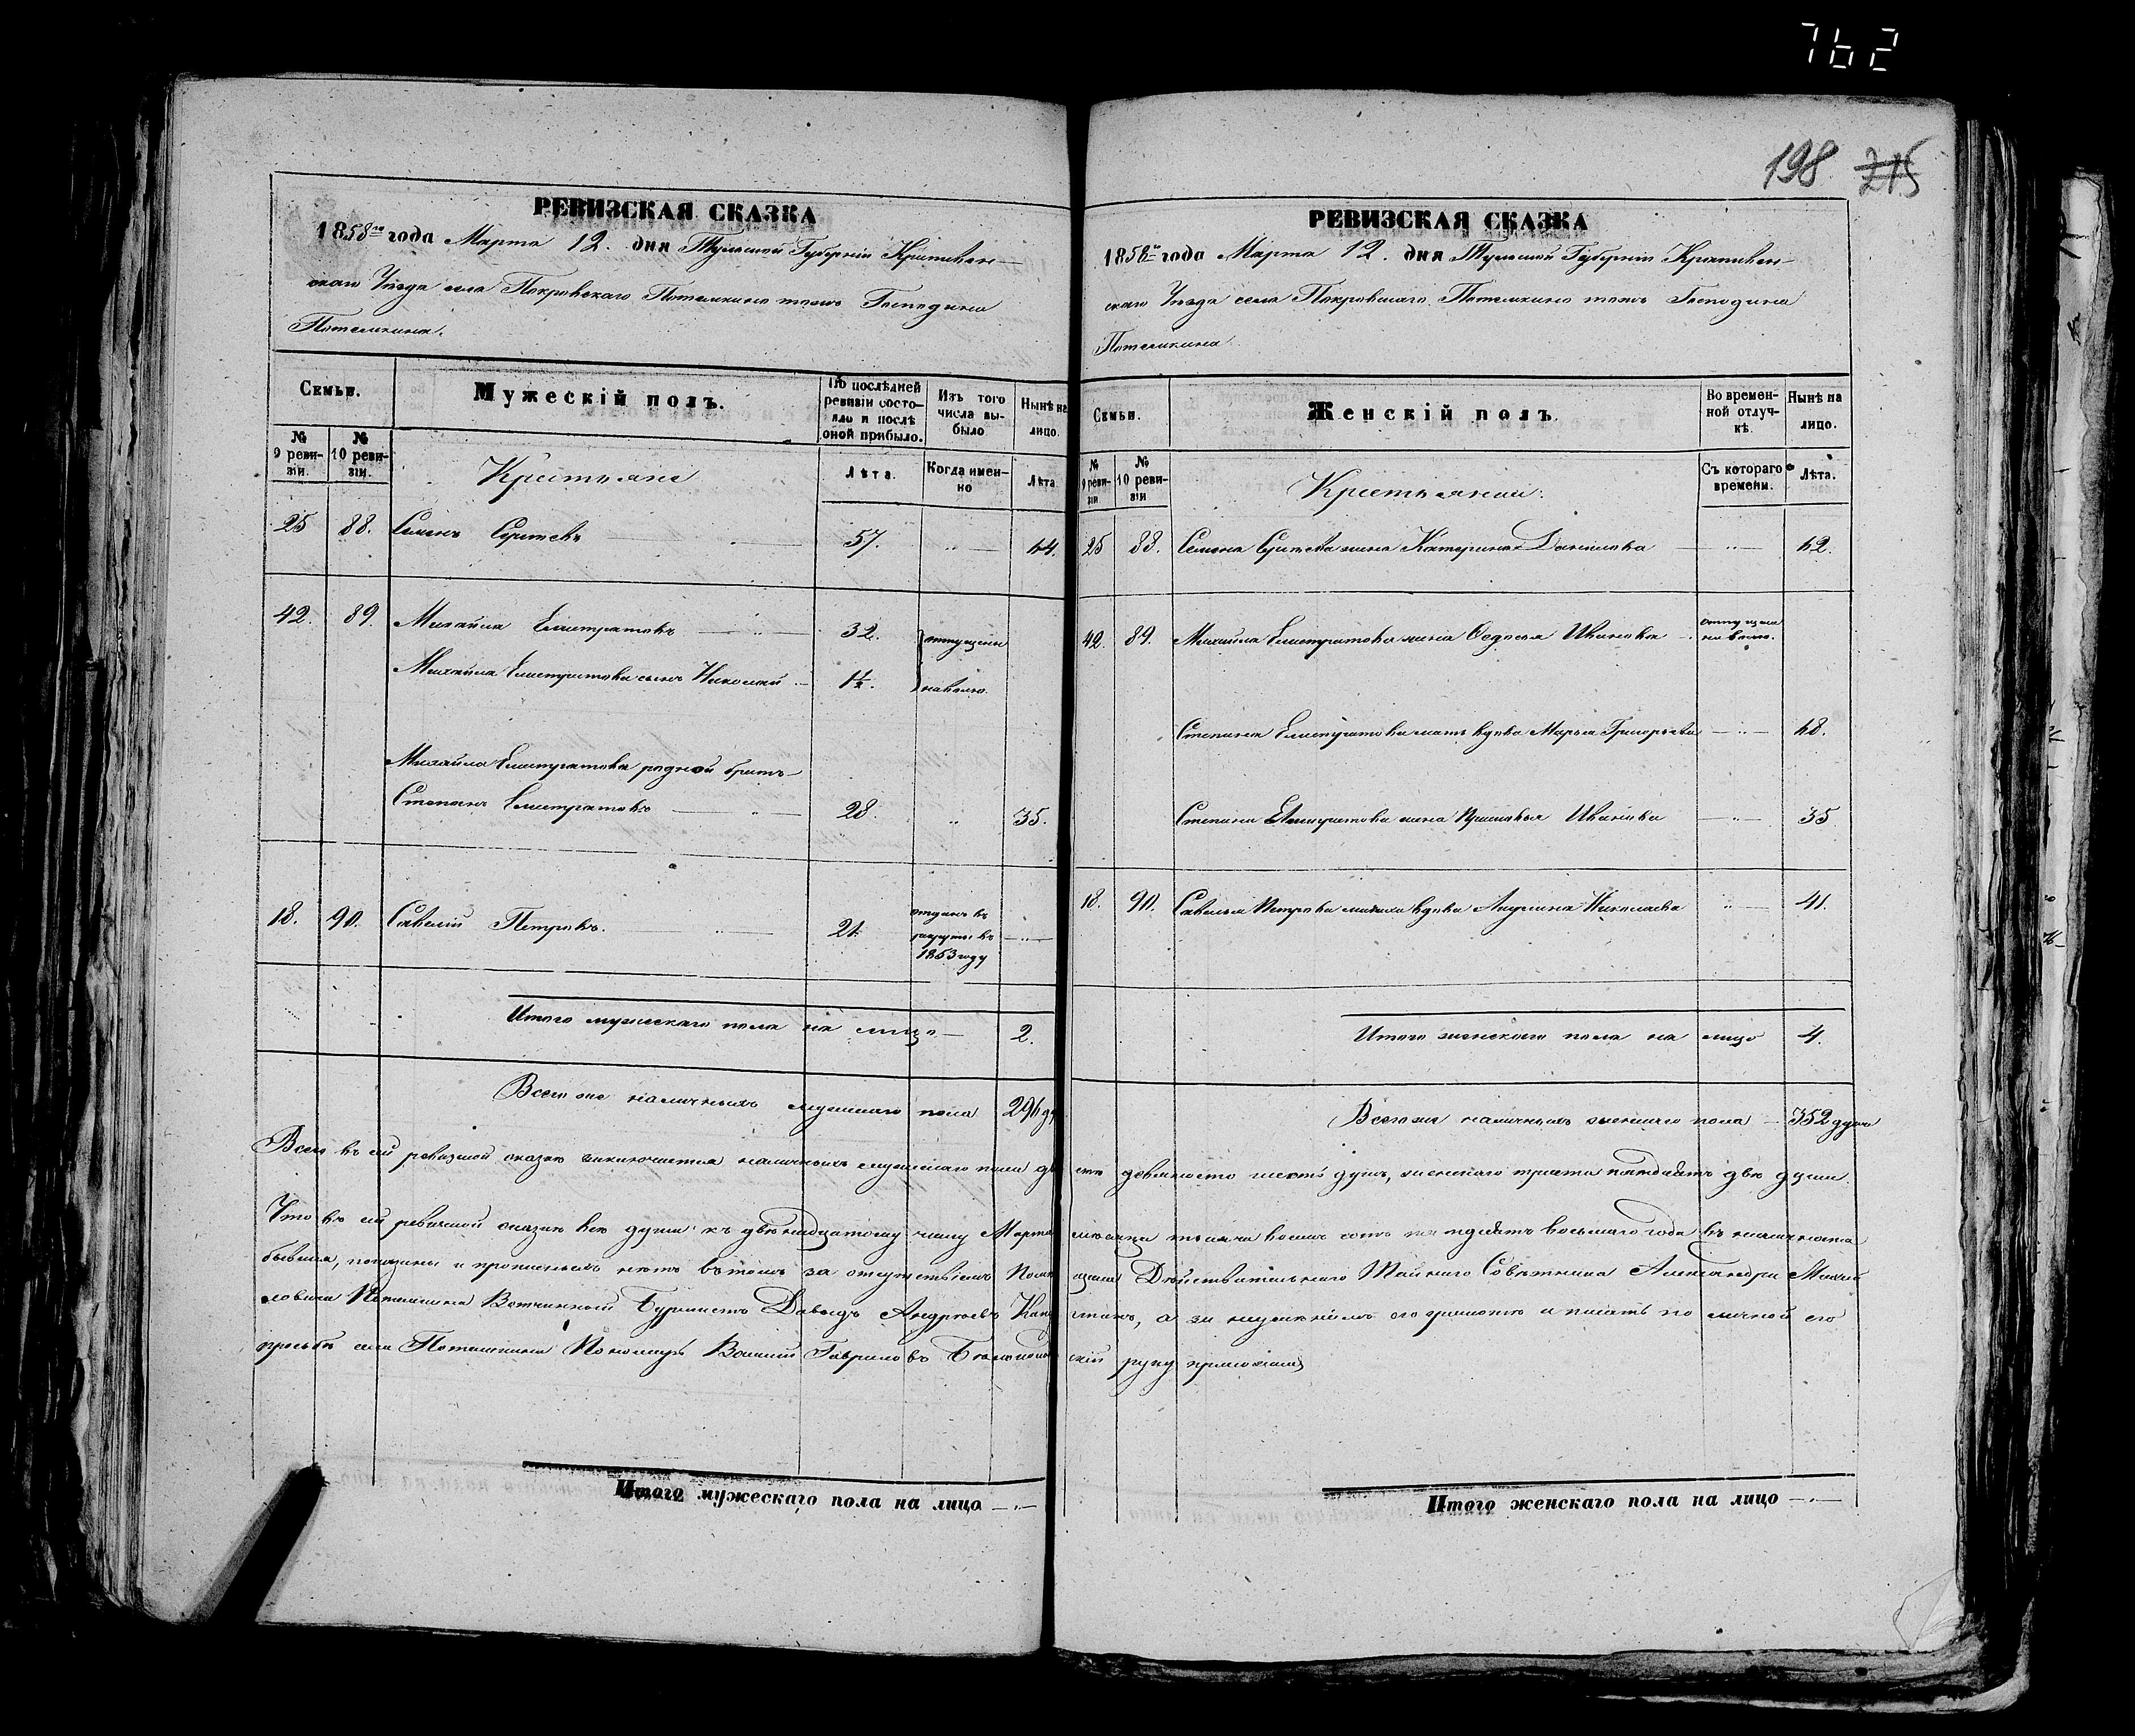 762
198 215
РЕВИЗСКАЯ СКАЗКА
1858го года Марта 12. дня Тульской Губерніи Крапивен-
скаго Уѣзда села Покровскаго Потемкино тожъ Господина
Потемкина.
Семьи.
Мужескій полъ.
По послѣдней ревизіи состояло и послѣ оной прибыло.
Изъ того числа выбыло
Нынѣ на лицо.
№ 9 ревизіи.
№ 10 ревизіи.
Крестьяне
Лѣта.
Когда именно
Лѣта
25 88. Семенъ 57. 64.
42. 89. Михайла Елистратовъ 32. отпущены
Михайла Елистратова сынъ Николай 1½. на волю.
Михайла Елистратова родной братъ
Степанъ Елистратовъ 28. 35.
18. 90. Савелій Петровъ. 21. отданъ въ рекруты въ 1853 году
Итого мужескаго пола на лицо 2.
Всего же наличныхъ мужскаго пола 296 ду
РЕВИЗСКАЯ СКАЗКА
1858го года Марта 12. дня Тульской Губерніи Крапивен-
скаго Уѣзда села Покровскаго Потемкино тожъ Господина
Потемкина
Семьи.
Женскій полъ.
Во временной отлучкѣ.
Нынѣ на лицо.
№ 9 ревизіи
№ 10 ревизіи
Крестьянки.
Съ котораго времени.
Лѣта.
25 88. Семена жена Катерина Данилова 62.
42. 89. Михайла Елистратова жена Федосья Иванова отпущена на волю.
Степана Елистратова мать вдова Марья Григорьева 68.
Степана Елистратова жена Прасковья Иванова 35
18. 90. Савелья Петрова мачиха вдова Акулина Николаева 41.
Итого женскаго пола на лицо 4.
Всего же наличныхъ женскаго пола 352 души
Всего въ сей ревизской сказке заключается наличныхъ мужескаго пола двести девяносто шесть душъ, женскаго триста пятьдесятъ две души.
Что въ сей ревизской сказке все души къ двенадцатому числу Марта месяца тысяча восемь сотъ пятьдесятъ восьмаго года въ наличности
бывшия, показаны и прописныхъ нетъ въ томъ за отсутствіемъ Помещика Действительнаго Тайнаго Советника Александра Михай
ловича Потемкина Вотчинный Бурмистръ Давыдъ Андреевъ а за неуменіемъ его грамоте и писать по личной его
просьбе села Потемкина Пономарь Василій Гавриловъ руку приложилъ
Итого мужескаго пола на лицо
Итого женскаго пола на лицо